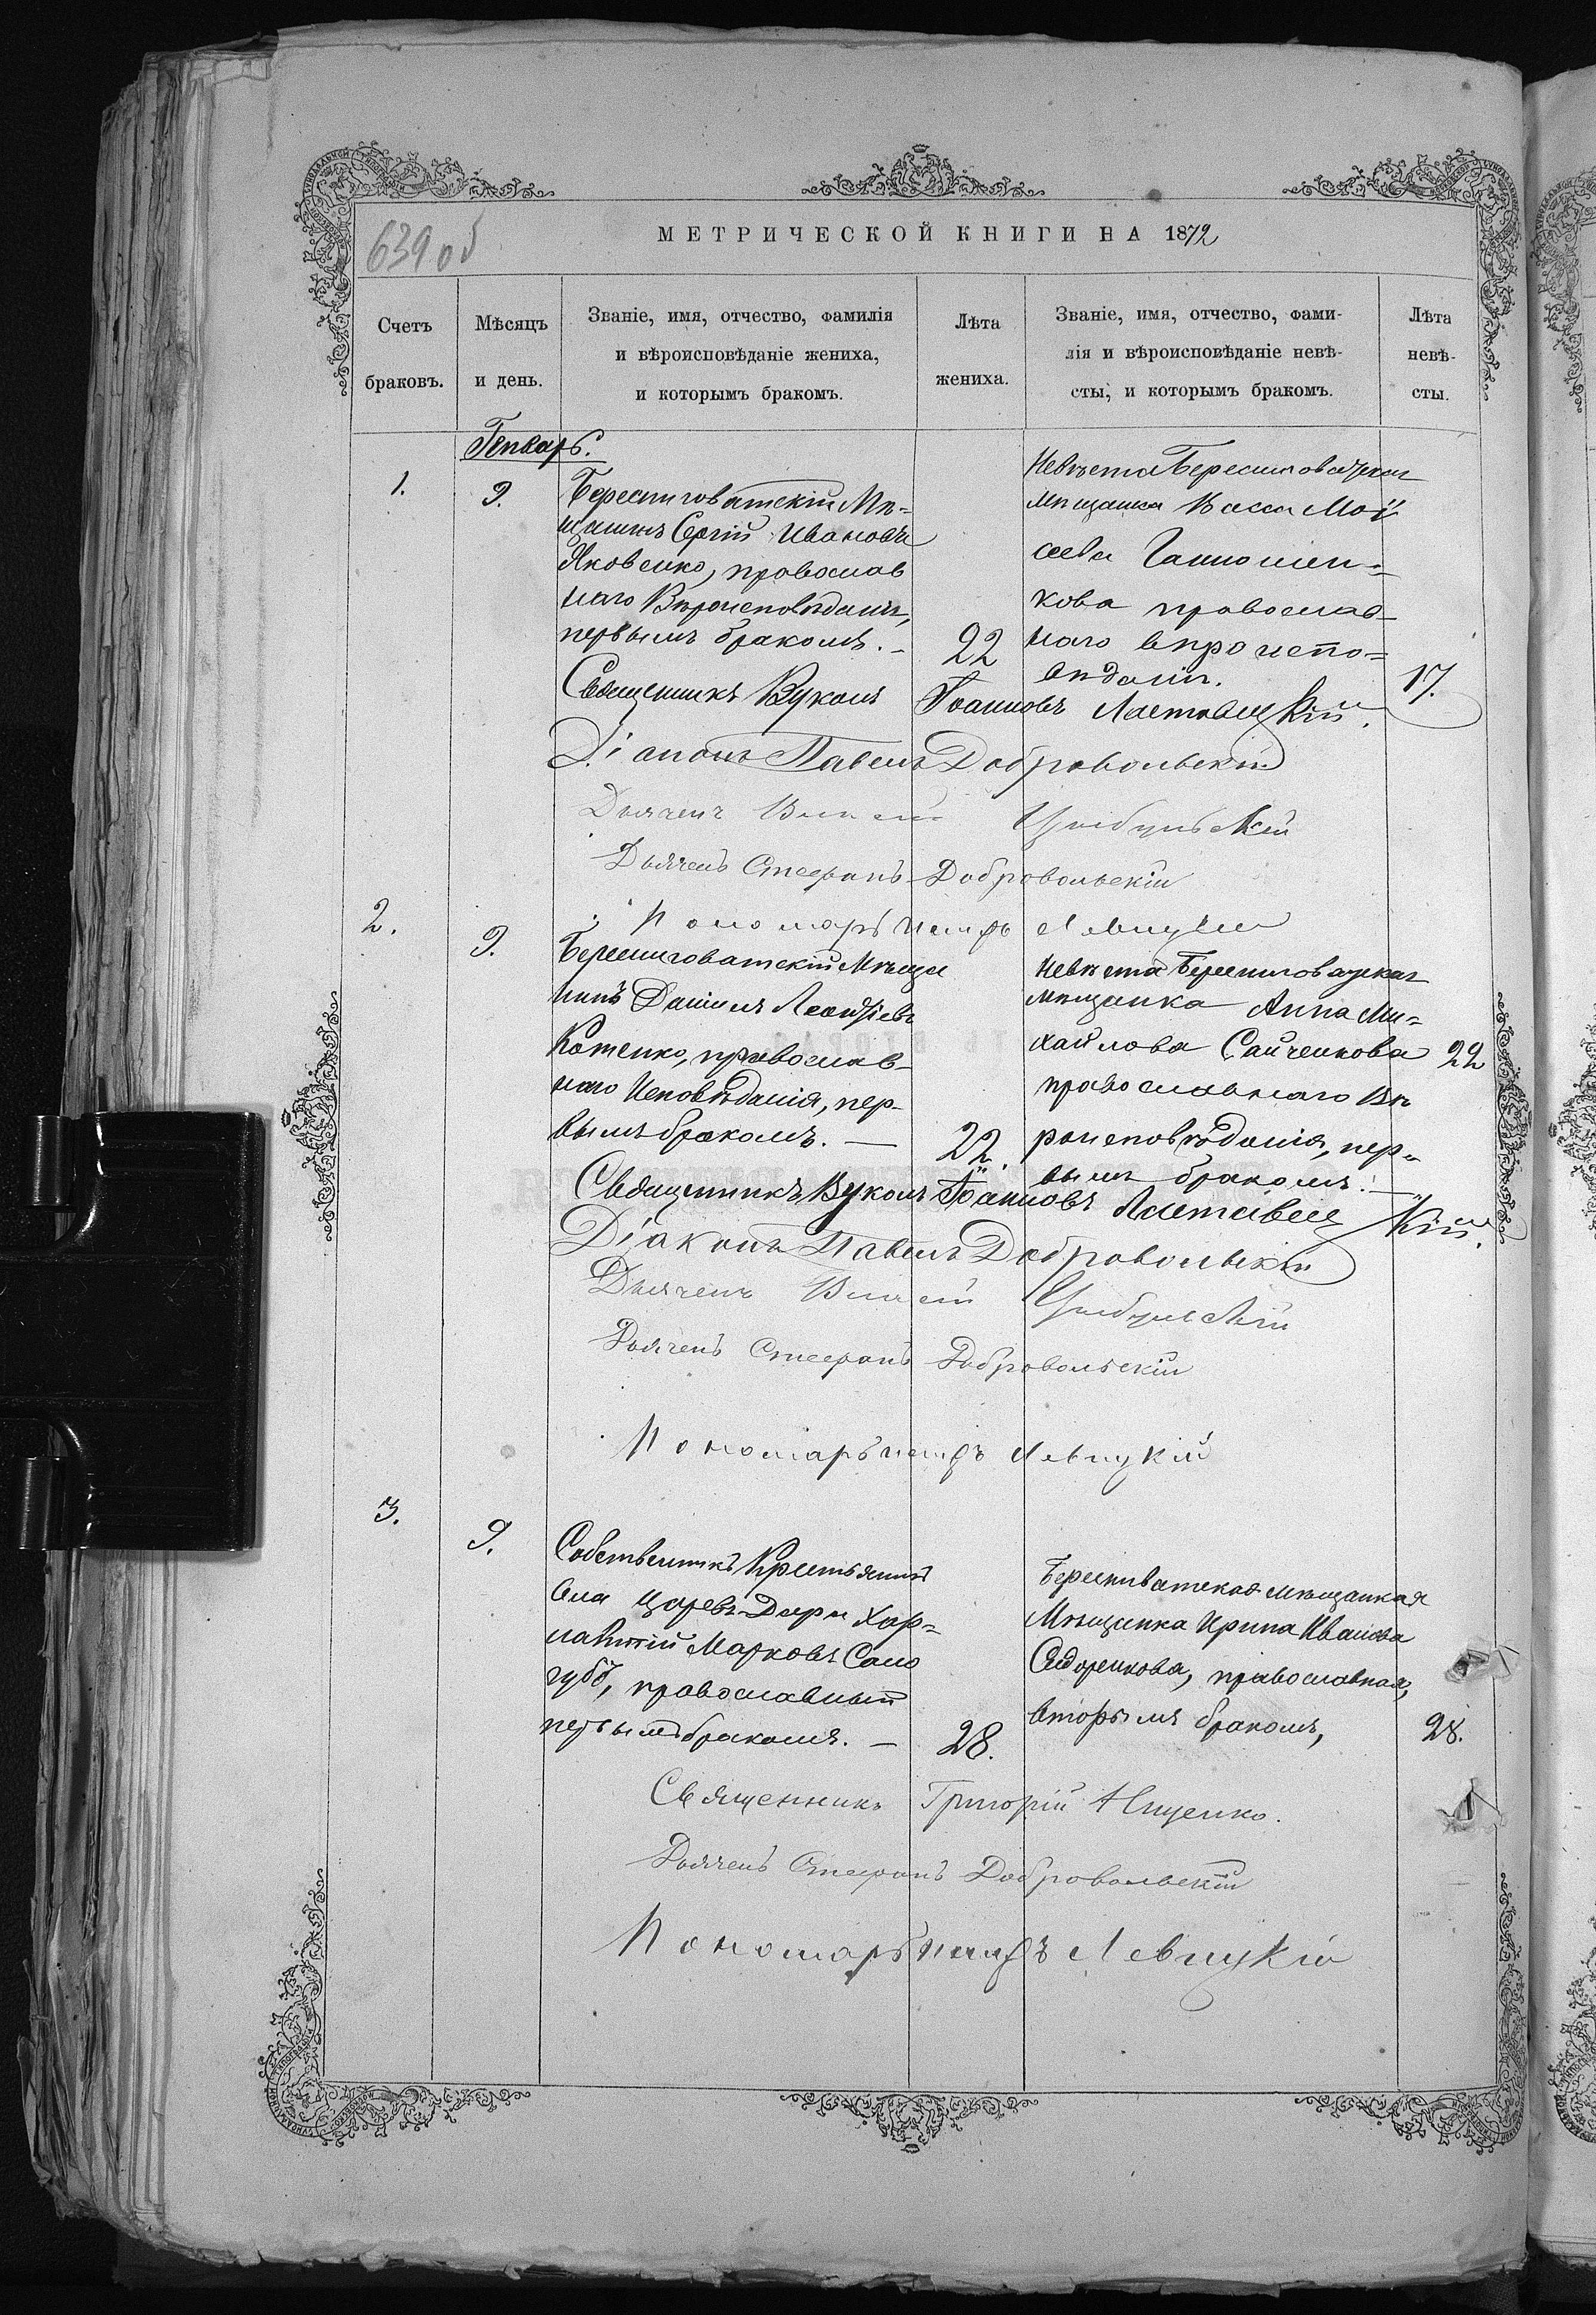 639 об
МЕТРИЧЕСКОЙ КНИГИ НА 1872
Счетъ браковъ.
Мѣсяцъ и день.
Званіе, имя, отчество, фамилія
и вѣроисповѣданіе жениха,
и которымъ бракомъ.
Лѣта жениха.
Званіе, имя, отчество, фами-
лія и вѣроисповѣданіе невѣ-
сты, и которымъ бракомъ.
Лѣта невѣ-сты.
Генварь.
1.
9.
Берестовятскій Мѣ=
щанинъ Сергій Ивановъ
Яковенко, православ
наго Вѣроисповѣданія,
первымъ бракомъ. —
22
Невѣста Берестовацкая
мѣщанка Васса Мой
сеева
кова православ-
наго вѣроиспо=
вѣданія.
17.
Священникъ Вуколъ Іоанновъ Ластовецкій.
Діаконъ Павелъ Добровольскій
Дьячекъ Цыбульскій
Дьячекъ Стефанъ Добровольскій
Пономарь Петръ Левицкій
2.
9.
Берестовятскій Мѣща
нинъ Даніилъ Леонтіевъ
Котенко, православ-
наго Исповѣданія, пер-
вымъ бракомъ. —
22.
Невѣста Берестовацкая
мѣщанка Анна Ми=
хайлова Сайченкова
православнаго Вѣ
роисповѣданія, пер-
вымъ бракомъ. —
22
Священникъ Вуколъ Іоанновъ Ластовецкій.
Діаконъ Павелъ Добровольскій
Дьячекъ Цыбульскій
Дьячекъ Стефанъ Добровольскій
Пономарь Петръ Левицкій
3.
9.
Собственникъ Крестьянинъ
села Царевъ-Дара Хар=
лампій Марковъ Сало
губъ, православный
первымъ бракомъ. —
28.
Берестоватская мѣщанкая
Мѣщанка Ирина Иванова
Сидоренкова, православная,
вторымъ бракомъ,
28.
Священникъ Григорій Ищенко.
Дьячекъ Стефанъ Добровольскій
Пономарь Петръ Левицкій